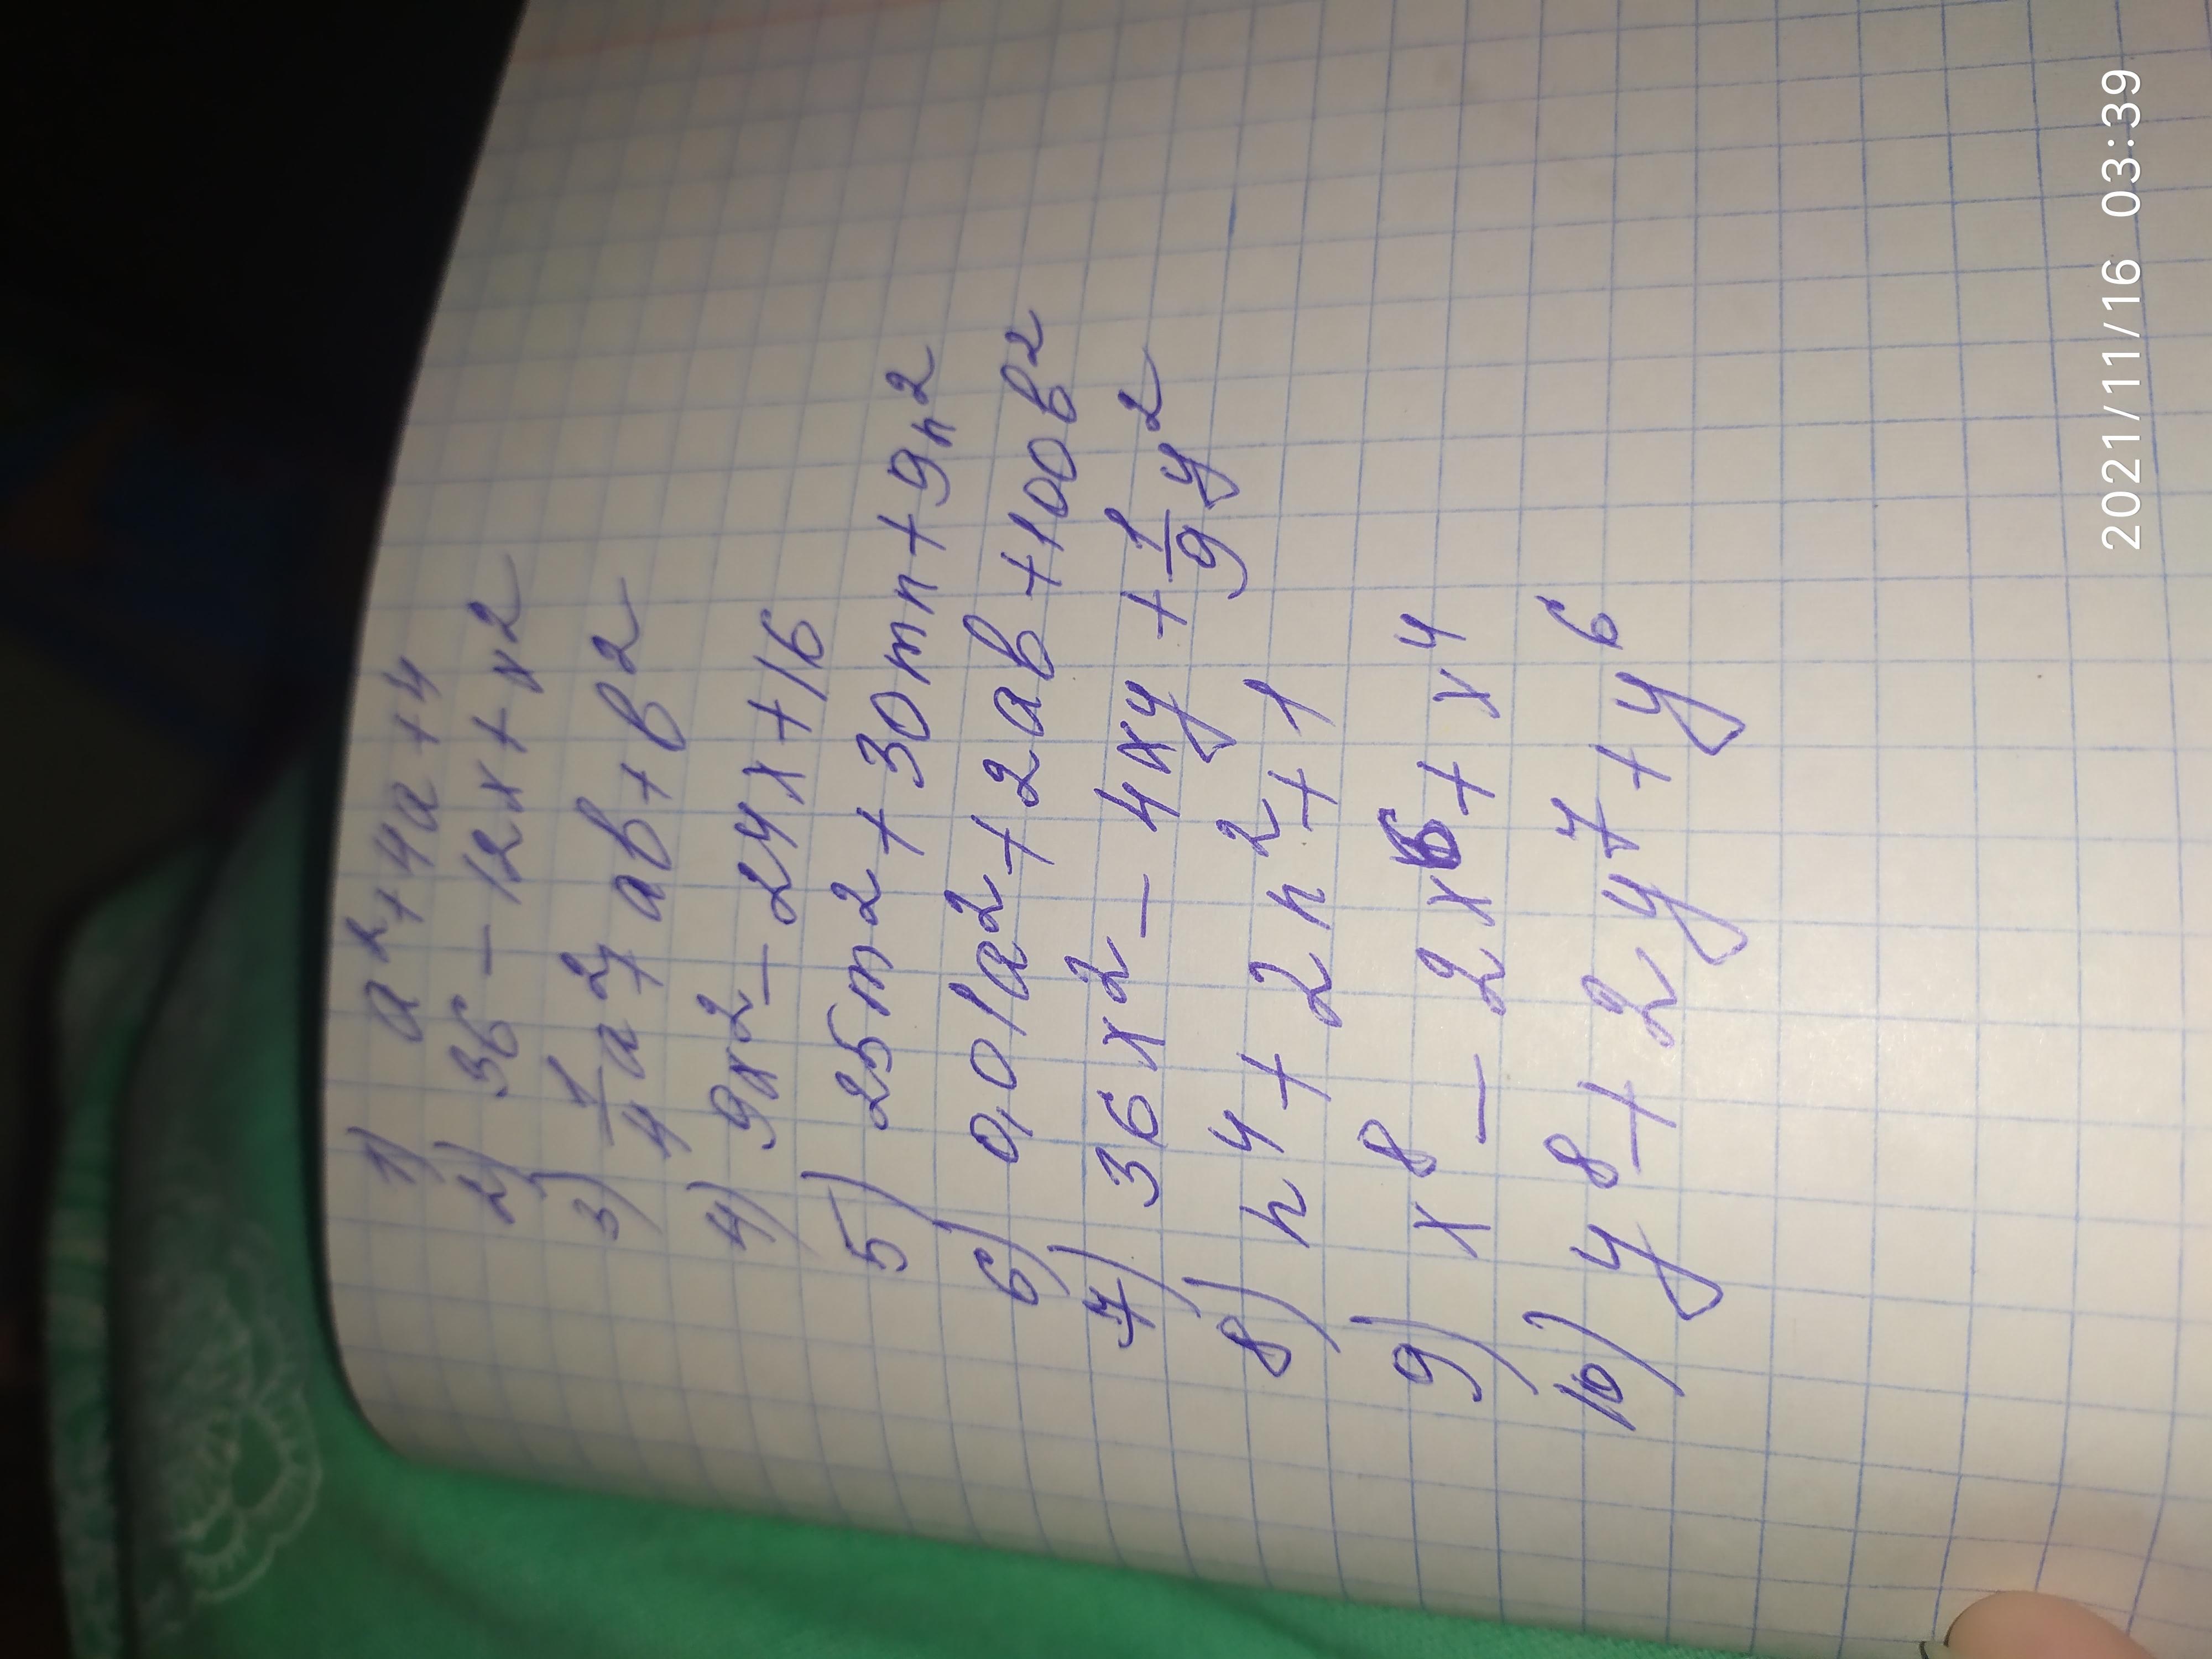 1) a²+4a+4
2) 36-12x+x²
3) 1/4 a²+ab+b²
4) 9x²-24x+16
5) 25m²+30mn+9n²
6) 0,01a²+2ab+100b²
7) 36x²-4xy+1/9 y²
8) n⁴+2n²+1
9) x⁸-2x⁶+x⁴
10) y⁸+2y⁷+y⁶
2021/11/16 03:39